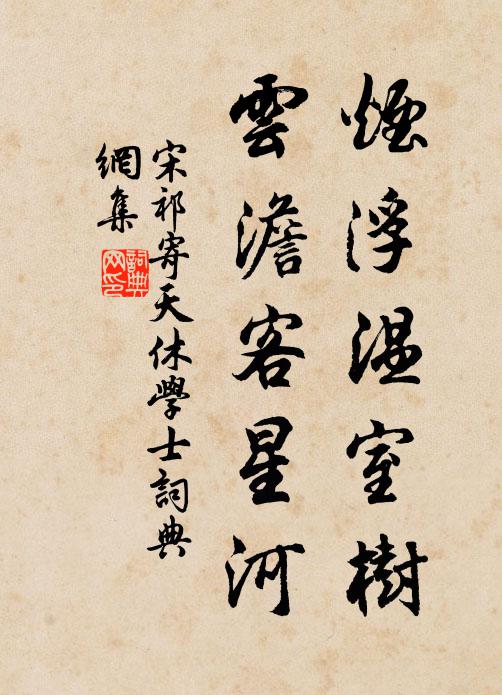 煙浮温室樹
雲澹客星河
宋祁寄天休學士詞典
網集
詞典網印